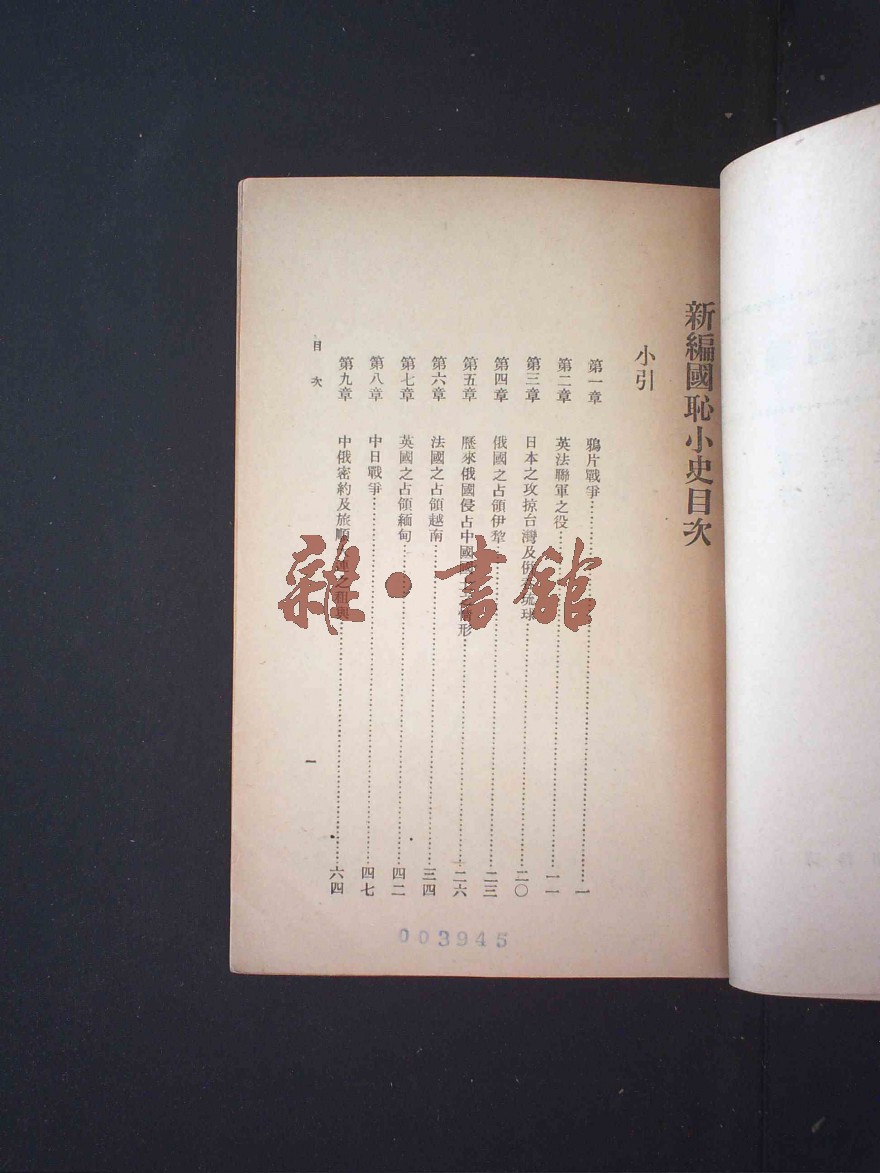 新編國恥小史目次
小引
第一章 鴉片戰爭……一
第二章 英法聯軍之役……一一
第三章 日本之攻掠台灣及併吞琉球……二〇
第四章 俄國之占領伊犂……二三
第五章 歷來俄國侵占中國國土之情形……二六
第六章 法國之占領越南……三四
第七章 英國之占領緬甸……四二
第八章 中日戰爭……四七
第九章 中俄密約及旅順大連之租與……六四
目次
一
003945
雜·書館